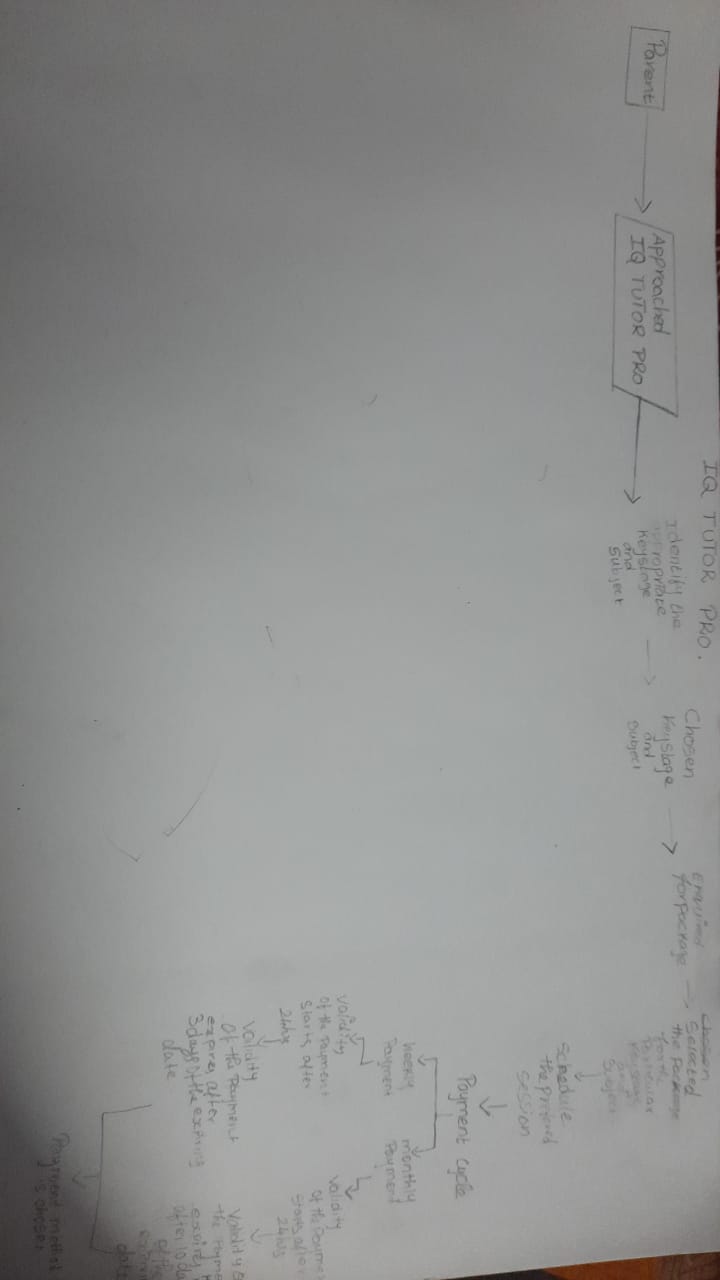 IQ TUTOR PRO.
Parent
Approached
IQ TUTOR PRO
Identify the
appropriate
Keystage
and
Subject
Chosen
Keystage
and
Subject
Enquired
for package
Chosen
Selected
the package
for the
Particular
Keystage
and
Subject
Schedule
the prefered
session
Payment cycle
weekly
Payment
monthly
Payment
Validity
Of the Payment
starts after
24hrs
Validity
Of the Payment
expires after
3 days of the expiring
date
Validity
Of the Payme
Starts after
24hrs
Validity
the Payme
expires
after 10 da
of the
date
Payment method
is chosen